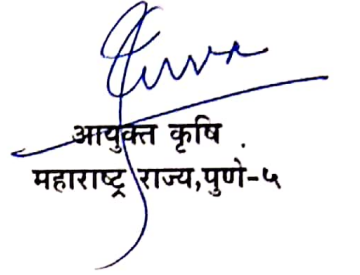 आयुक्त कृषि
महाराष्ट्र राज्य,पुणे-५